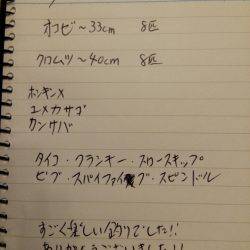 オコビ〜33cm 8匹
クロムツ〜40cm 8匹
ホンキンメ
ユメカサゴ
カンサバ
タイコ・クランキー・スロースキップ
ビブ・スパイファイブ・スピンドル
すごく楽しい釣りでした!!
ありがとうございました!!